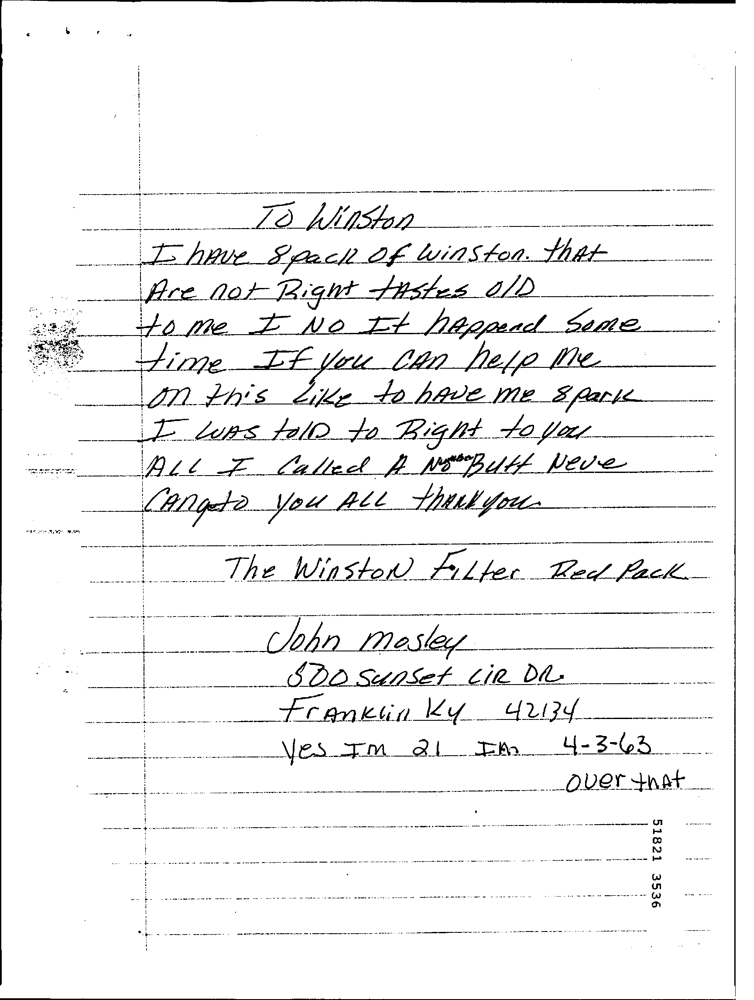 To Winston
I have 8 pack of winston. that
Are not Right tastes old
to me I No It happend Some
time If you CAN help Me
on this Like to have me 8 park
I was told to Right to you
ALL I Called A Butt Neve
CAngeto you ALL thank you
The Winston Filter Red Pack
John mosley
500 Sunset CIR DR.
Franklin Ky 42134
Yes Im 21 Im 4-3-63
over that
51821 3536